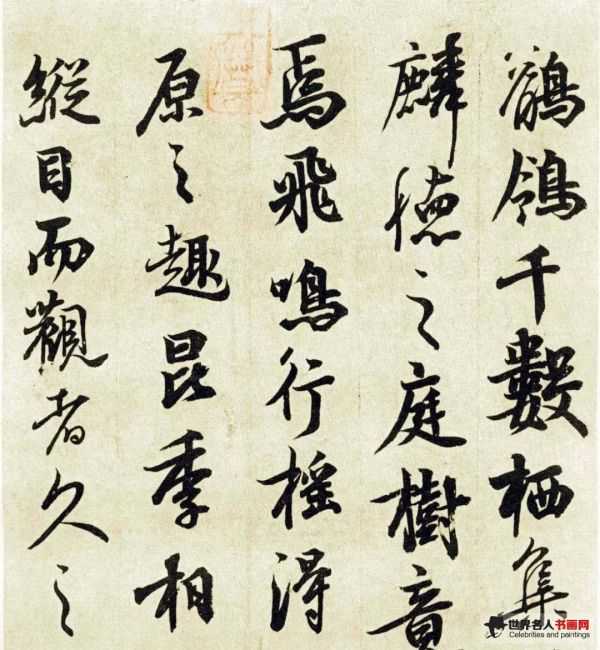 鶺鴒千數栖集
麟德之庭樹竟
焉飛鳴行搖得
原之趣昆季相
縱目而觀者久之
世界名人书画网
Celebrities and paintings